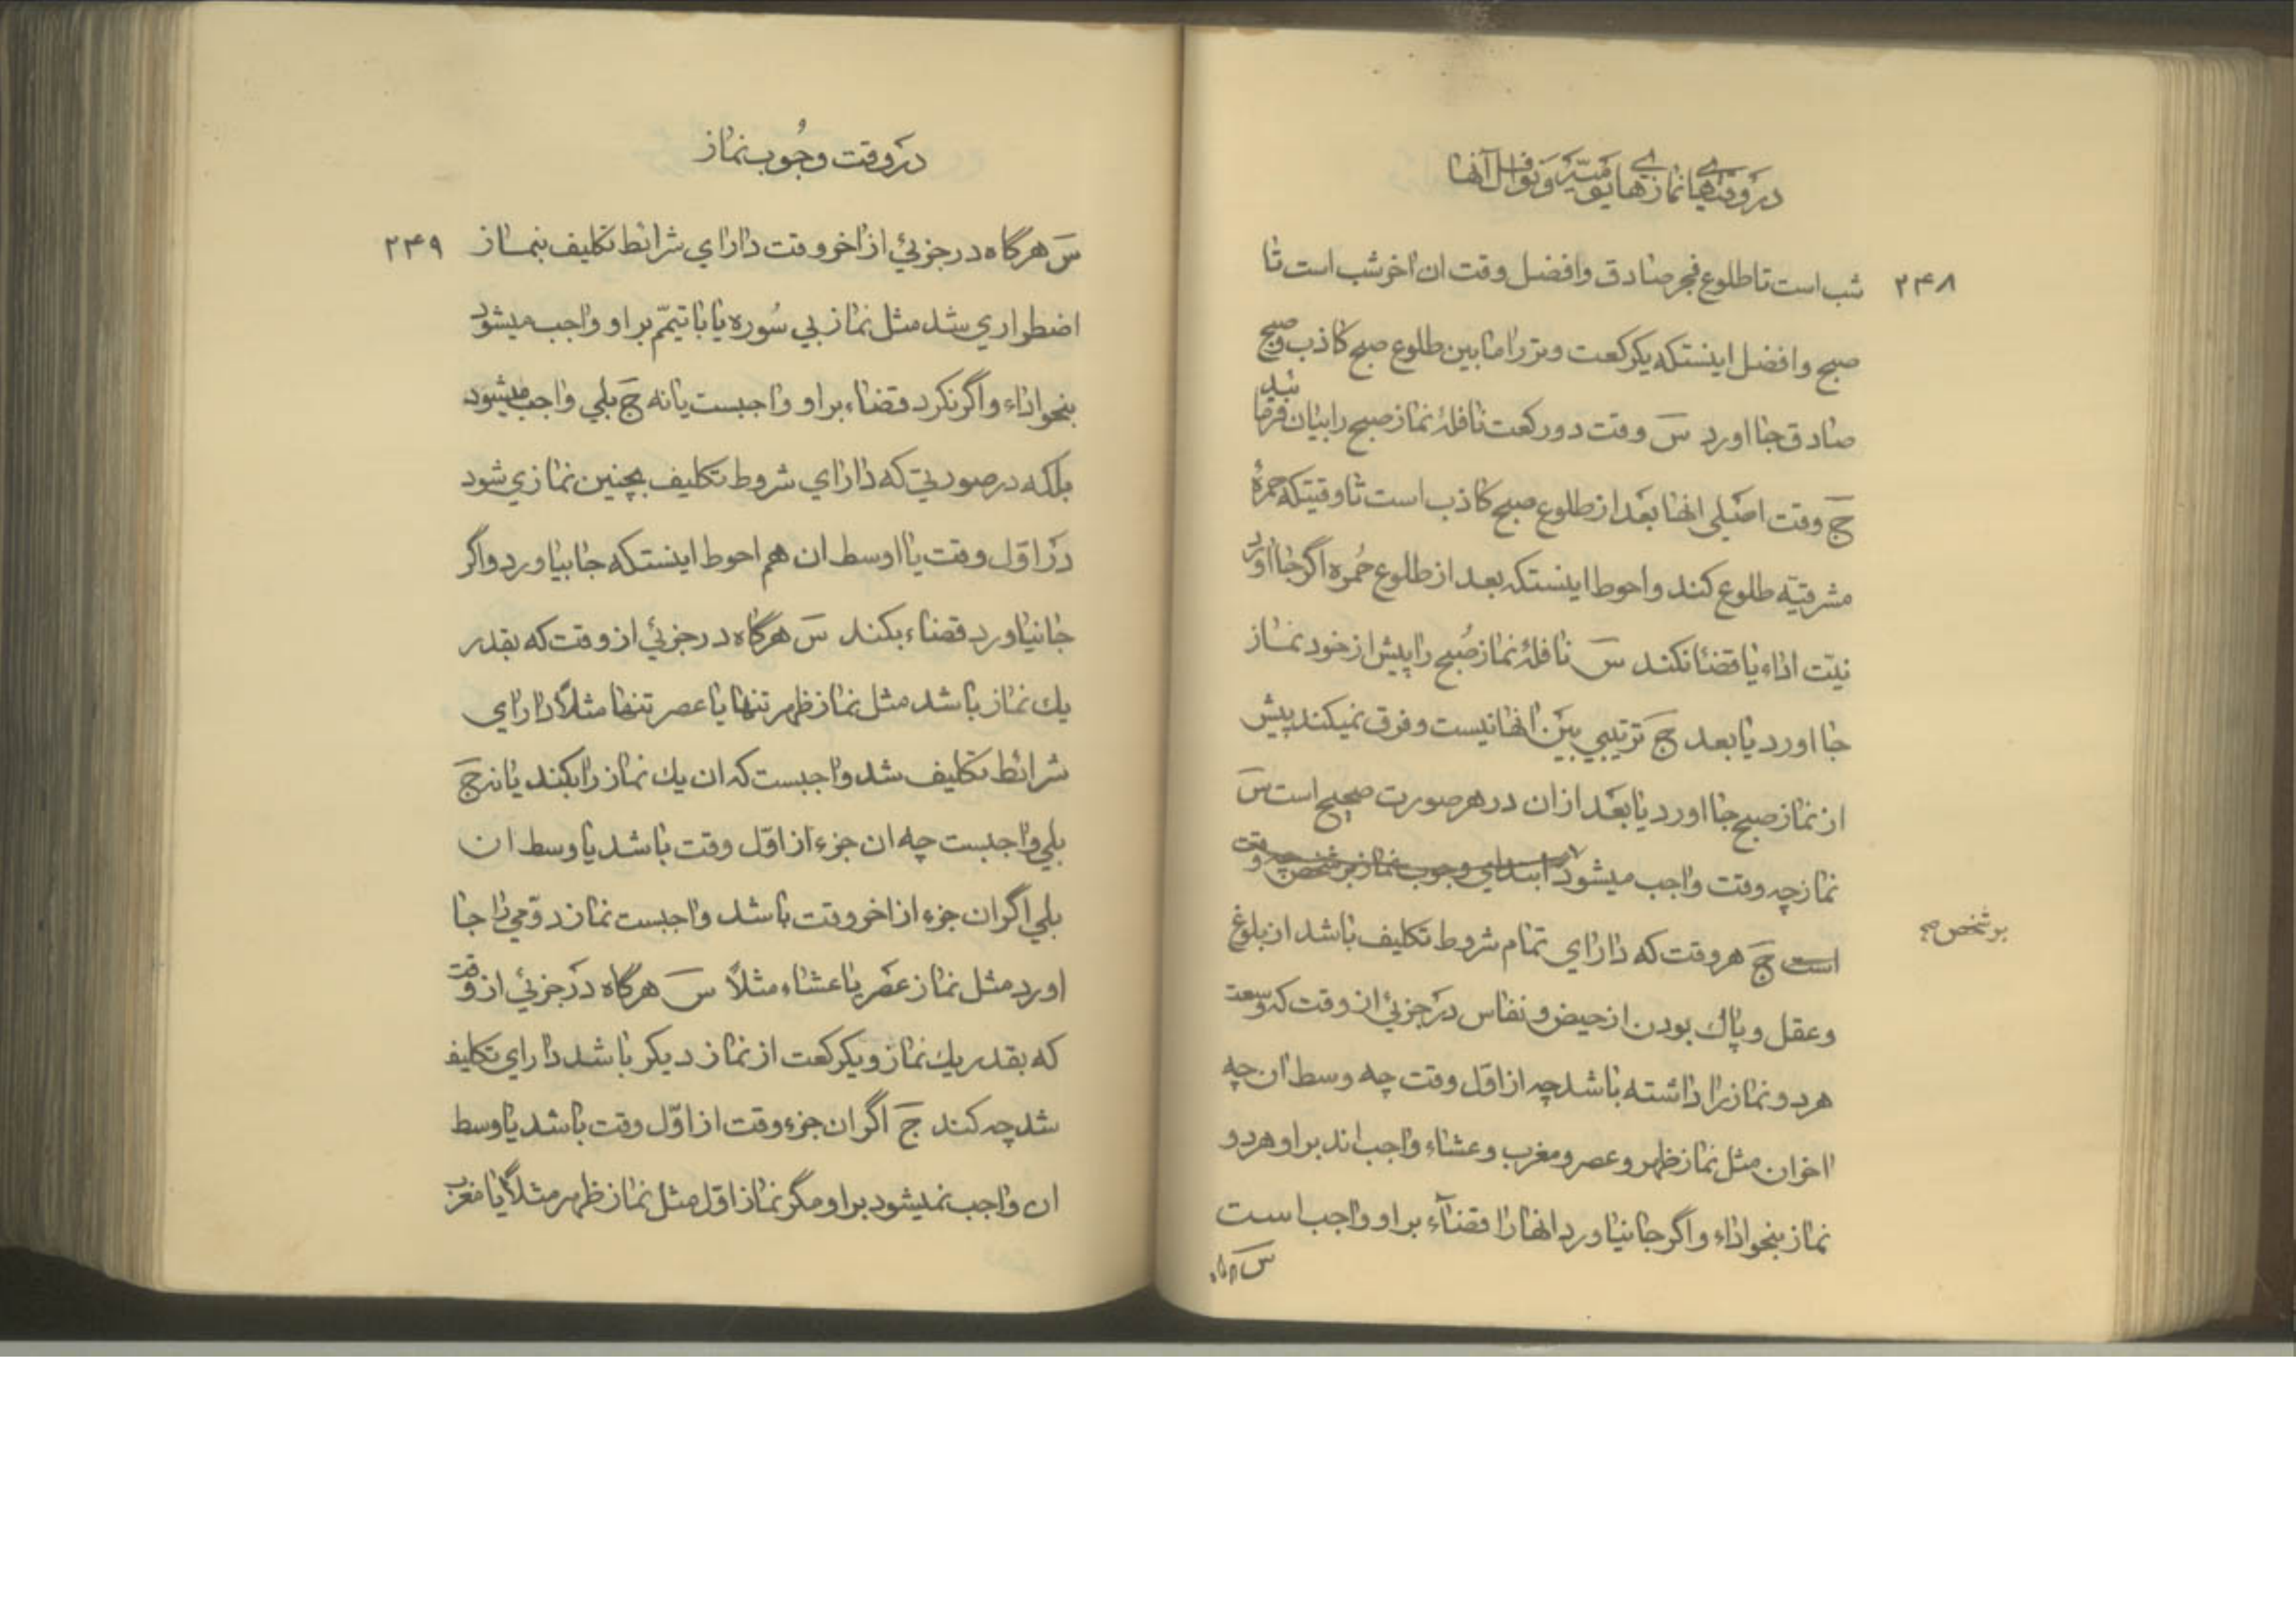 در وقتهاے نمازهاے یومیّه و نوافل آنها
۲۴۸
شب است تا طلوع فجر صادق وافضل وقت ان اخر شب است تا
صبح وافضل اینستکه یکرکعت وتر را مابین طلوع صبح کاذب وصبح
صادق جا اورد سَ وقت دو رکعت نافلۀ نماز صبح را بیان فرمائید
جَ وقت اصلی انها بعد از طلوع صبح کاذب است تا وقتیتکه حمرۀ
مشرقیّه طلوع کند واحوط اینستکه بعد از طلوع حُمره اگر جا اورد
نیّت اداء یا قضا نکند سَ نافلۀ نماز صُبح را پیش از خود نماز
جا اورد یا بعد جَ ترتیبی بین انها نیست وفرق نمیکند پیش
از نماز صبح جا اورد یا بعد از ان در هر صورت صحیح است سَ
نماز چه وقت واجب میشود ابتدای وجوب نماز بر شخص چه وقت
بر شخص صح
است جَ هر وقت که دارای تمام شروط تکلیف باشد از بلوغ
وعقل وپاك بودن از حیض ونفاس در جزئی از وقت که وسعت
هر دو نماز را داشته باشد چه از اوّل وقت چه وسط ان چه
اخر ان مثل نماز ظهر وعصر ومغرب وعشاء واجب اند بر او هر دو
نماز بنحو اداء واگر جا نیاورد انها را قضآء بر او واجب است
در وقت وجُوب نماز
۲۴۹
سَ هرگاه در جزئی از اخر وقت دارای شرائط تکلیف بنماز
اضطراری شد مثل نماز بی سُوره یا با تیمّم بر او واجب میشود
بنحو اداء واگر نکرد قضاء بر او واجبست یا نه جَ بلی واجب میشود
بلکه در صورتی که دارای شروط تکلیف بچنین نمازی شود
در اوّل وقت یا اوسط ان هم احوط اینستکه جا بیاورد واگر
جا نیاورد قضاء بکند سَ هرگاه در جزئی از وقت که بقدر
یك نماز باشد مثل نماز ظهر تنها یا عصر تنها مثلاً دارای
شرائط تکلیف شد واجبست که ان یك نماز را بکند یا نه جَ
بلی واجبست چه ان جزء از اوّل وقت باشد یا وسط ان
بلی اگر ان جزء از اخر وقت باشد واجبست نماز دوّمی را جا
اورد مثل نماز عصر یا عشاء مثلاً سَ هرگاه در جزئی از وقت
که بقدر یك نماز ویکرکعت از نماز دیکر باشد دارای تکلیف
شد چه کند جَ اگر ان جزء وقت از اوّل وقت باشد یا وسط
ان واجب نمیشود بر او مگر نماز اوّل مثل نماز ظهر مثلاً یا مغرب